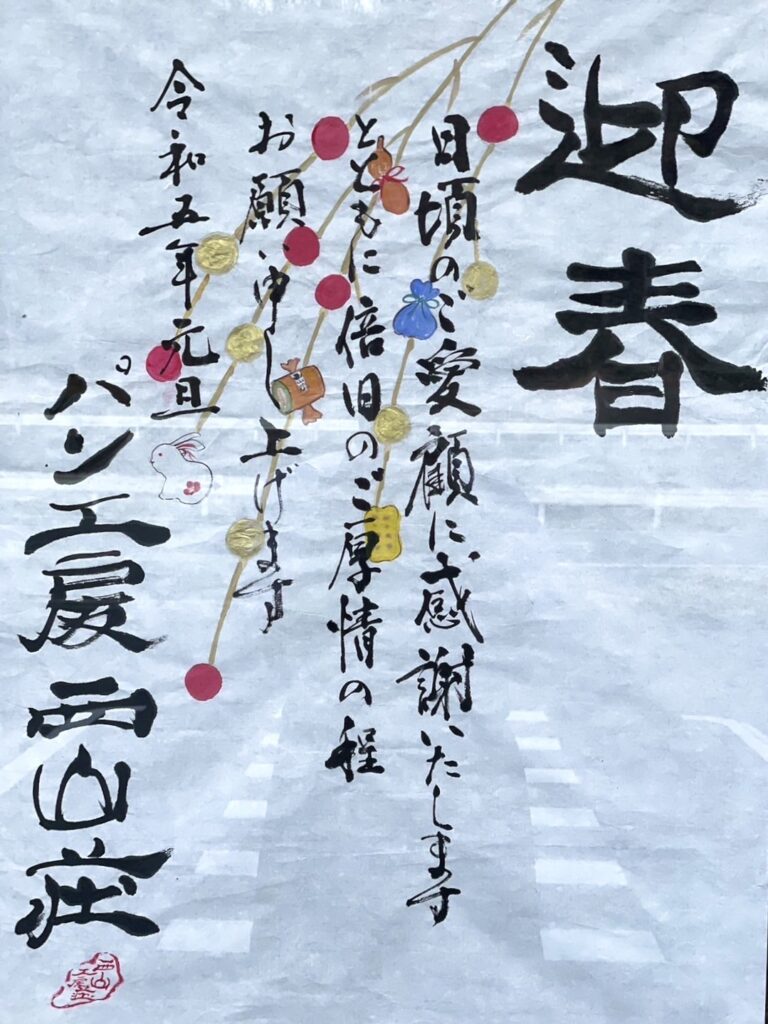 迎春
日頃のご愛顧に感謝いたします
とともに倍旧のご厚情の程
お願い申し上げます
令和五年元旦
パン工房西山荘